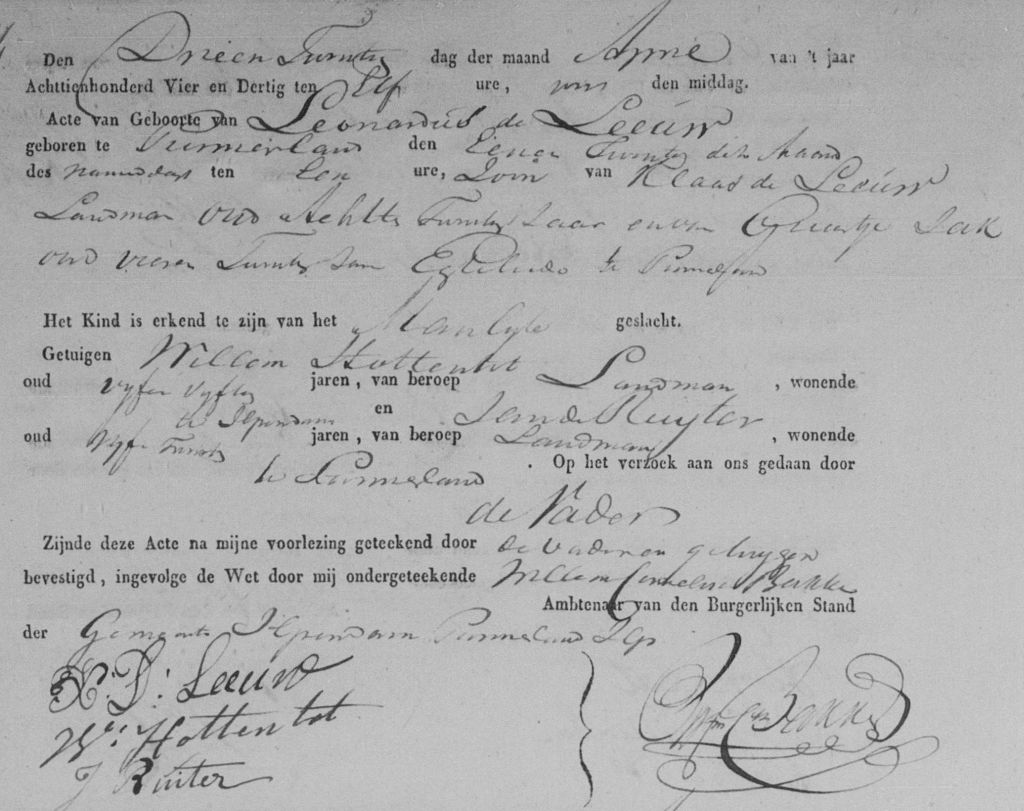 Den Drieen Twintig dag der maand April van 't jaar
Achttienhonderd Vier en Dertig ten Elf ure, voor den middag.
Acte van Geboorte van Leonardus de Leeuw
geboren te Purmerland den Eenen Twintig deze Maand
des namiddags ten Een ure, Zoon van Klaas de Leeuw
Landman oud Achten Twintig Jaar en van Guurtje Jak
oud vieren Twintig Jaar Egtelieden te Purmerland
Het Kind is erkend te zijn van het Manlyke geslacht.
Getuigen Willem Hottentot
oud Vyfen Vyftig jaren, van beroep Landman, wonende
te Ilpendam en Jan de Ruyter
oud Vyfen Twintig jaren, van beroep Landman, wonende
te Purmerland . Op het verzoek aan ons gedaan door
de Vader
Zijnde deze Acte na mijne voorlezing geteekend door de Vader en getuygen
bevestigd, ingevolge de Wet door mij ondergeteekende Willem Cornelis Bakker
Ambtenaar van den Burgerlijken Stand
der Gemeente Ilpendam Purmerland Ilp
K: D: Leeuw
Wm: Hottentot
J Ruiter
Wm Cs Bakker